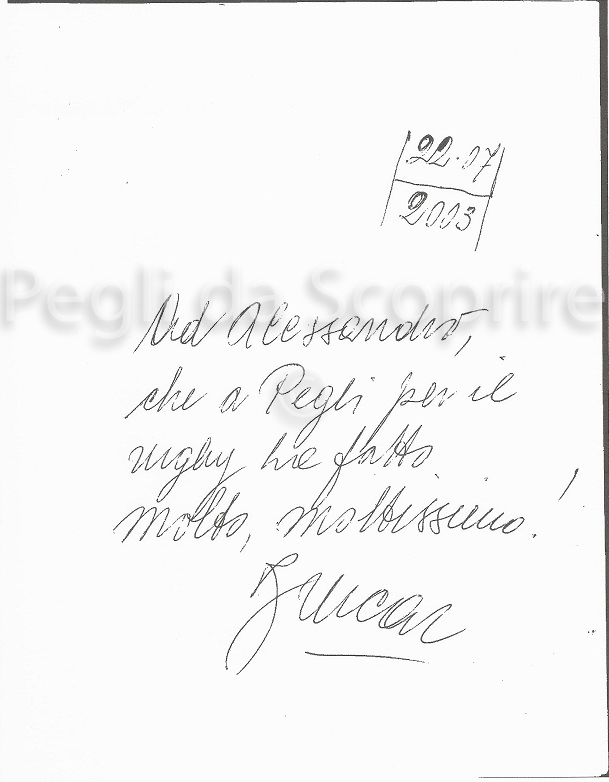 22.07
2003
Pegli da Scoprire
©
Ad Alessandro,
che a Pegli per il
rugby ha fatto
molto, moltissimo!